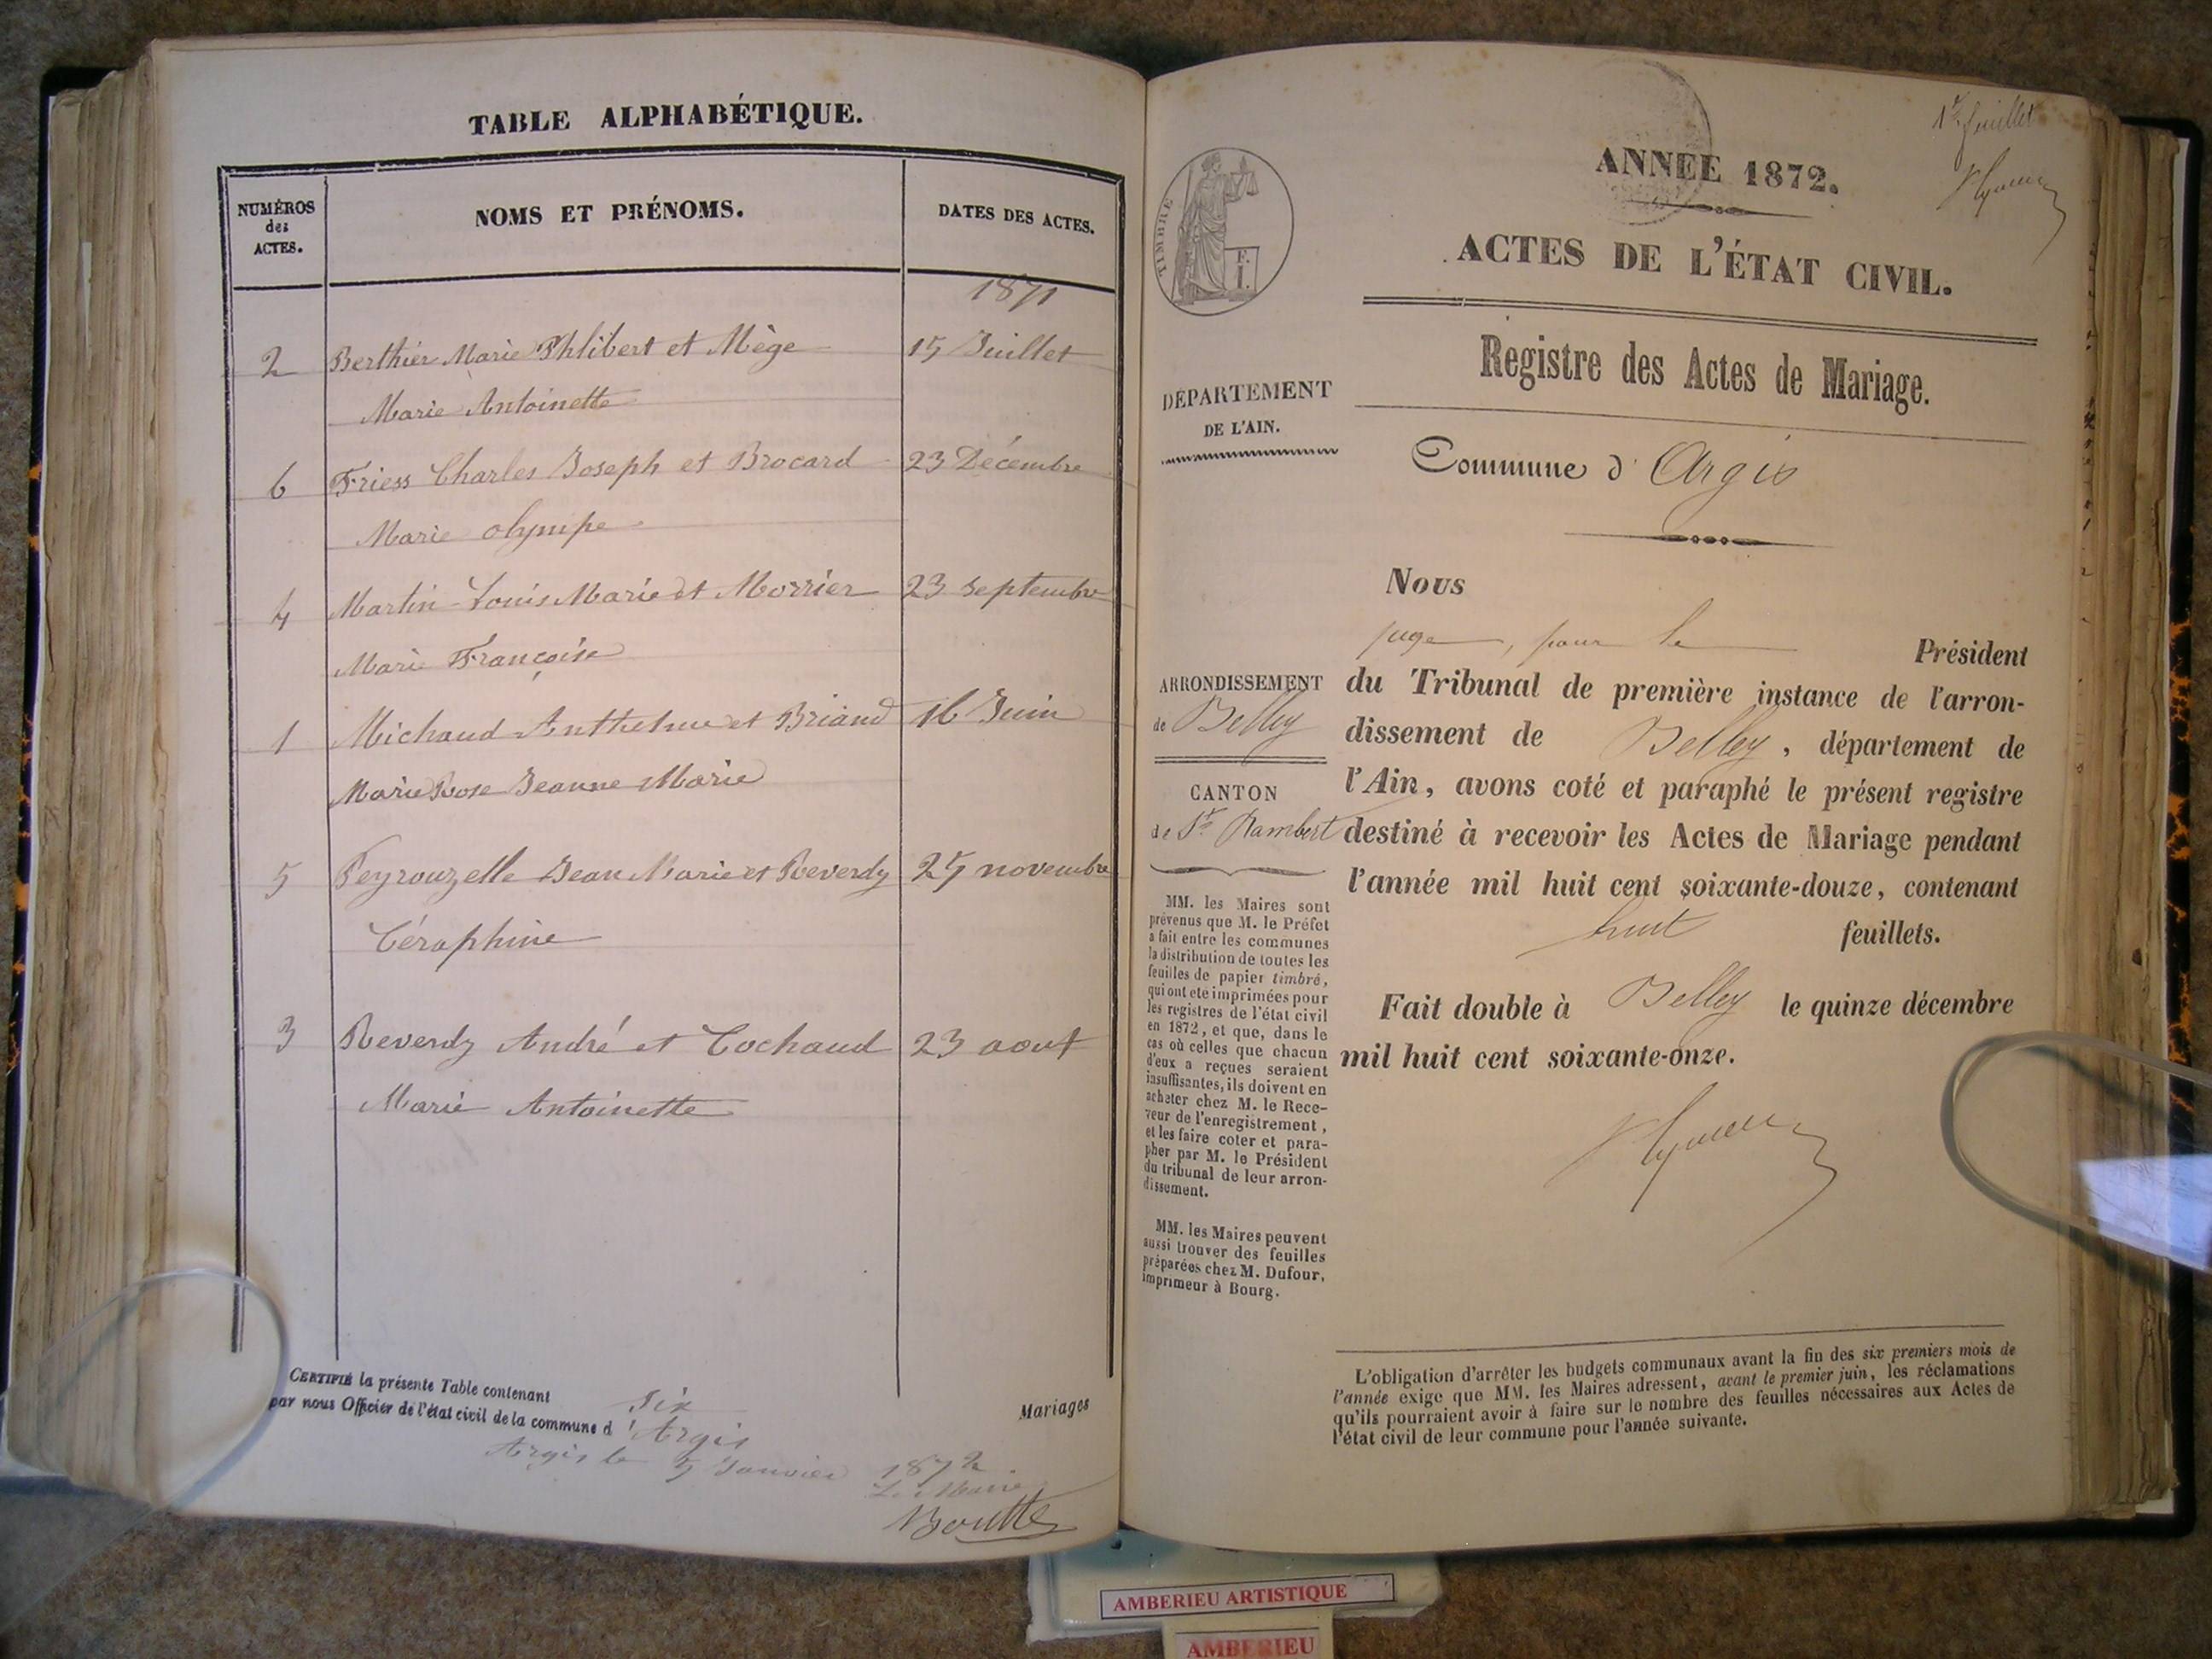 TABLE ALPHABÉTIQUE.
NUMÉROS des ACTES.
NOMS ET PRÉNOMS.
DATES DES ACTES.
1871
2 Berthier Marie Phlibert et Mège 15 Juillet
Marie Antoinette
6 Friess Charles Joseph et Brocard 23 Décembre
Marie olympe
4 Martin Louis Marie et Morrier 23 septembre
Marie Françoise
1 Michaud Anthelme et Briand 16 Juin
Marie Rose Jeanne Marie
5 Peyrouzelle Jean Marie et Reverdy 25 novembre
Céraphine
3 Reverdy André et Cochaud 23 aout
Marie Antoinette
CERTIFIÉ la présente Table contenant six Mariages
par nous Officier de l'état civil de la commune d'Argis
Argis le 5 Janvier 1872
Le Maire
1er feuillet
TIMBRE
F.
I.
ANNEE 1872.
ACTES DE L'ÉTAT CIVIL.
Registre des Actes de Mariage.
DÉPARTEMENT
DE L'AIN.
Commune d'Argis
ARRONDISSEMENT
de Belley
CANTON
de St Rambert
MM. les Maires sont
prévenus que M. le Préfet
a fait entre les communes
la distribution de toutes les
feuilles de papier timbré,
qui ont été imprimées pour
les registres de l'état civil
en 1872, et que, dans le
cas où celles que chacun
d'eux a reçues seraient
insuffisantes, ils doivent en
acheter chez M. le Rece-
veur de l'enregistrement,
et les faire coter et para-
pher par M. le Président
du tribunal de leur arron-
dissement.
MM. les Maires peuvent
aussi trouver des feuilles
préparées chez M. Dufour,
imprimeur à Bourg.
Nous
juge, pour le Président
du Tribunal de première instance de l'arron-
dissement de Belley, département de
l'Ain, avons coté et paraphé le présent registre
destiné à recevoir les Actes de Mariage pendant
l'année mil huit cent soixante-douze, contenant
huit feuillets.
Fait double à Belley le quinze décembre
mil huit cent soixante-onze.
L'obligation d'arrêter les budgets communaux avant la fin des six premiers mois de
l'année exige que MM. les Maires adressent, avant le premier juin, les réclamations
qu'ils pourraient avoir à faire sur le nombre des feuilles nécessaires aux Actes de
l'état civil de leur commune pour l'année suivante.
AMBERIEU ARTISTIQUE
AMBERIEU